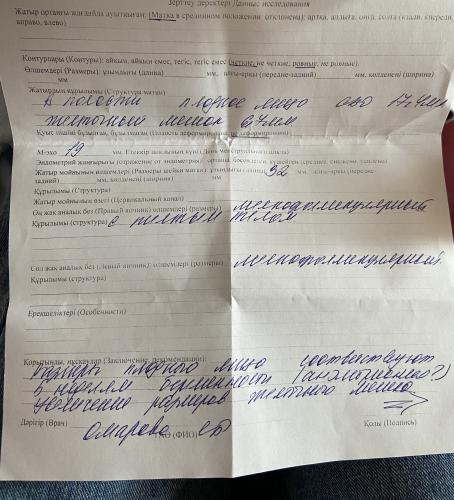 зерттеу деректері Данные исследования
Жатыр ортаңғы жағдайда ауытқыған: (Матка в срединном положении отклонена): артқа, алдыға, оңға, солға (кзади, кпереди,
вправо, влево)
Контурлары (Контуры): айқын, айқын емес, тегіс, тегіс емес (четкие, не четкие, ровные, не ровные).
Өлшемдері (Размеры): ұзындығы (длина) мм, алғы-арқы (передне-задней) мм, көлденең (ширина)
мм
Жатырдың құрылымы (Структура матки)
В полости плодное яйцо СВД 17,4мм
желточный мешок 6,4мм
Қуыс пішіні бұзылған, бұзылмаған (Полость деформирована, не деформирована)
М-эхо 19 мм. Етеккір циклының күні (День менструального цикла)
Жатыр мойнының өлшемдері (Размеры шейки матки): ұзындығы (длина) 32 мм, алғы-арқы (передне-
задний) мм, көлденең (ширина) мм
Құрылымы (Структура)
Жатыр мойнының өзегі (Цервикальный канал)
Оң жақ аналық без (Правый яичник): өлшемдері (размеры) мелкофолликулярный
Құрылымы (структура) с желтым телом
Сол жақ аналық без (Левый яичник): өлшемдері (размеры) мелкофолликулярный
Құрылымы (структура)
Ерекшеліктері (Особенности)
Қорытынды, нұсқаулар (Заключение, рекомендации):
Размеры плодного яйца соответствуют
5 неделям беременности (анэмбриония?)
увеличение размеров желточного мешка
Дәрігер (Врач) Омарова
ТАӘ (ФИО) Қолы (Подпись)